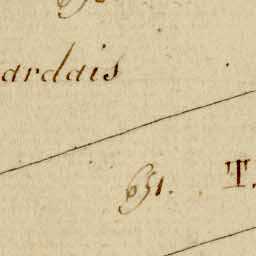 ardais
651. T.